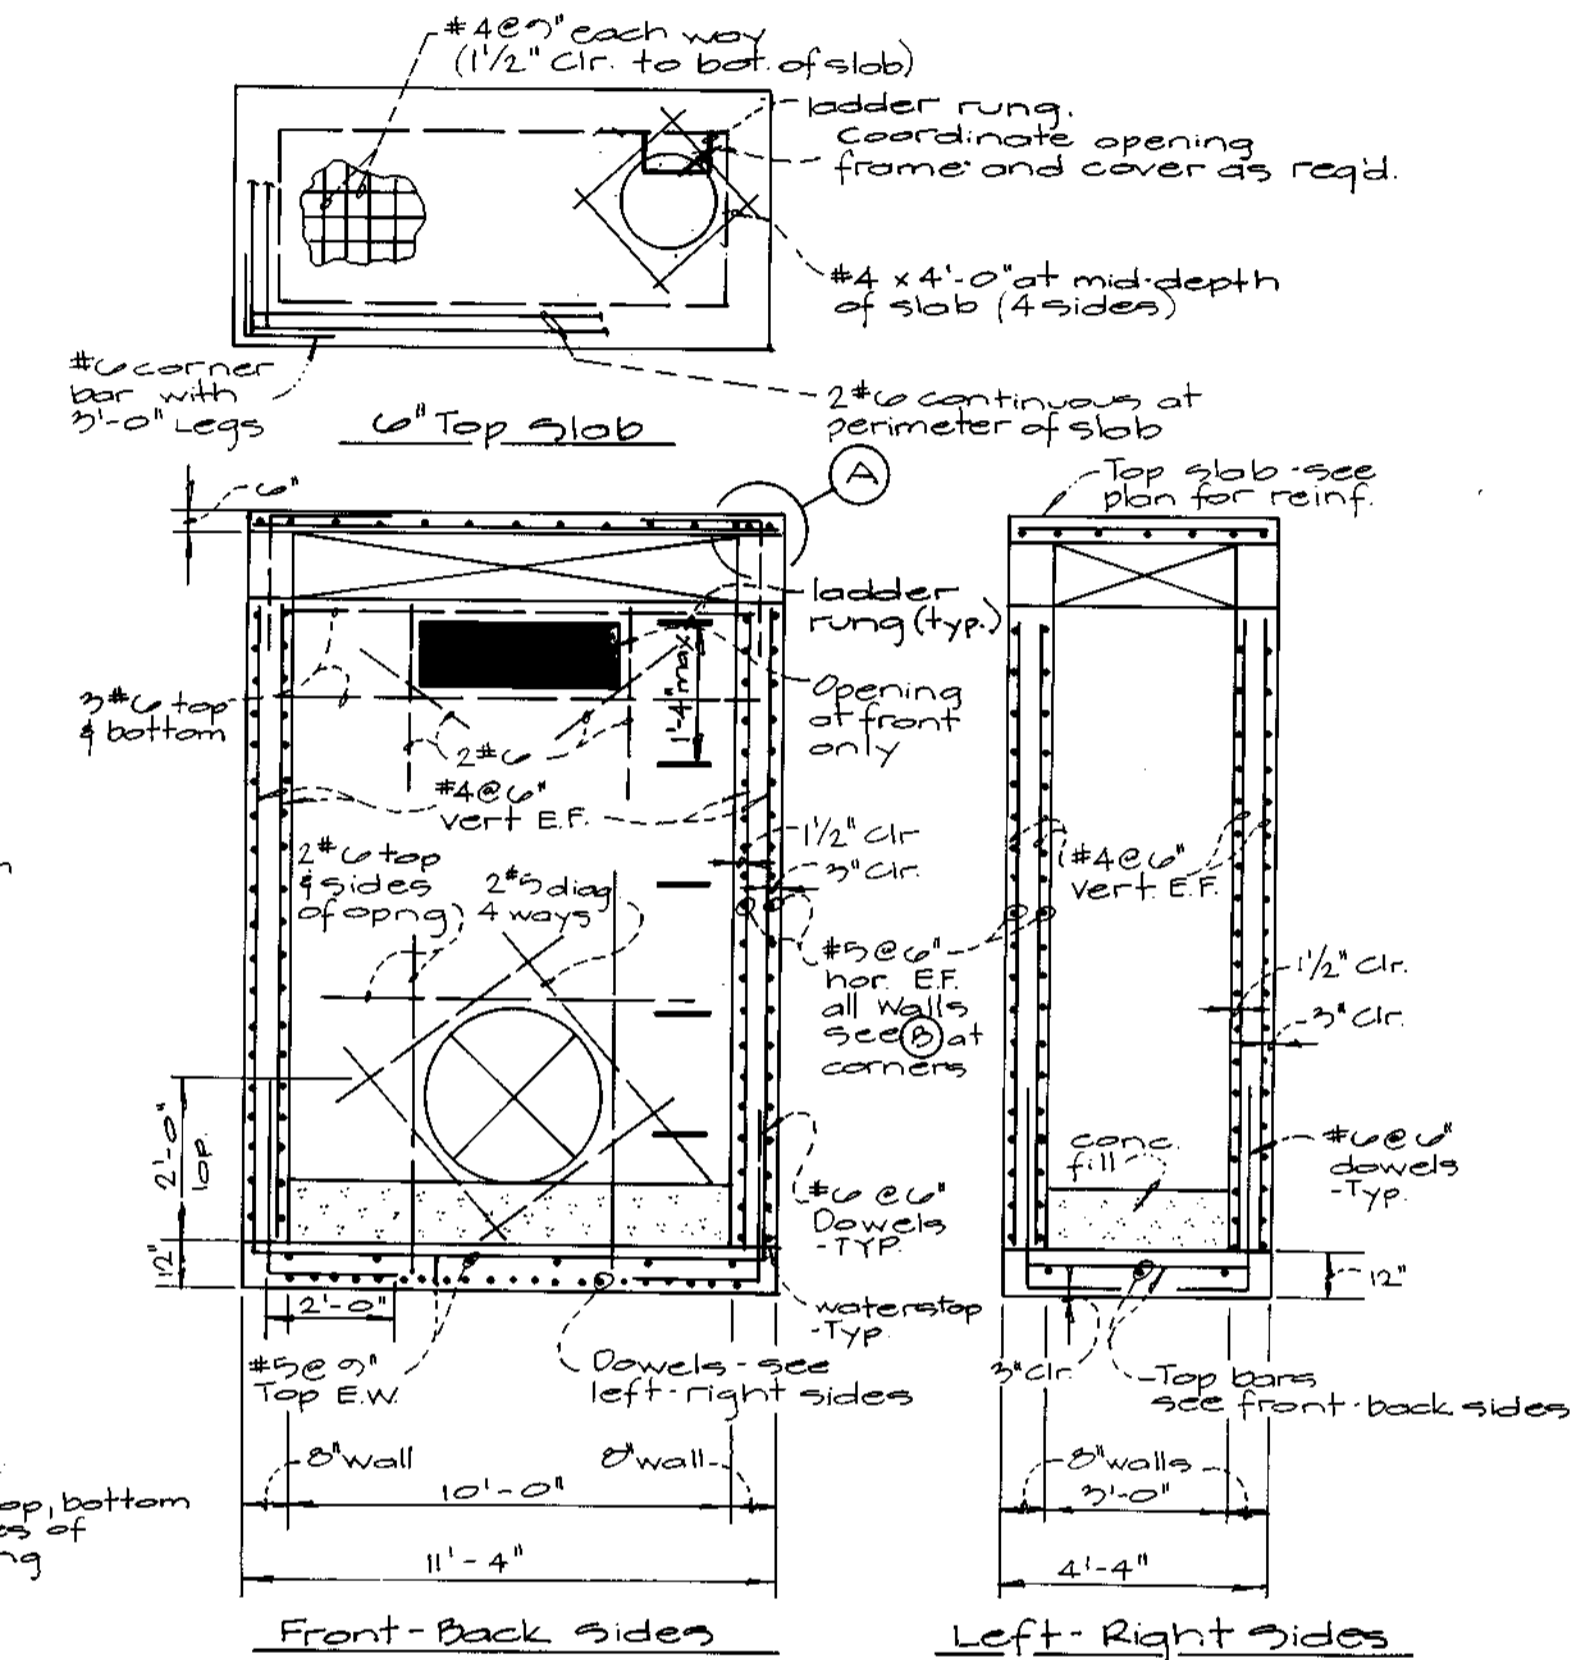 #4@9" each way
(1 1/2" Clr. to bot. of slab)
ladder rung.
Coordinate opening
frame and cover as req'd.
#4 x 4'-0" at mid-depth
of slab (4 sides)
#6 corner
bar with
3'-0" Legs
6" Top Slab
2#6 continuous at
perimeter of slab
A
6"
Top slab - see
plan for reinf.
ladder
rung (typ.)
3#6 top
& bottom
1'-4" max
Opening
at front
only
2#6
#4@6"
vert E.F.
1 1/2" Clr
3" Clr.
2#6 top
& sides
of opng
2#5 diag
4 ways
#4@6"
vert. E.F.
#5@6"
hor. E.F.
all walls
see B at
corners
1 1/2" Clr.
3" Clr.
2'-0"
lap.
12"
conc.
fill
#6@6"
dowels
-Typ.
#6 @6"
Dowels
-TYP.
2'-0"
waterstop
-Typ.
12"
#5@9"
Top E.W.
Dowels - see
left-right sides
3" clr.
Top bars
see front-back sides
8" wall
8" wall
8" walls
10'-0"
3'-0"
op, bottom
es of
ng
11'-4"
4'-4"
Front-Back Sides
Left-Right Sides